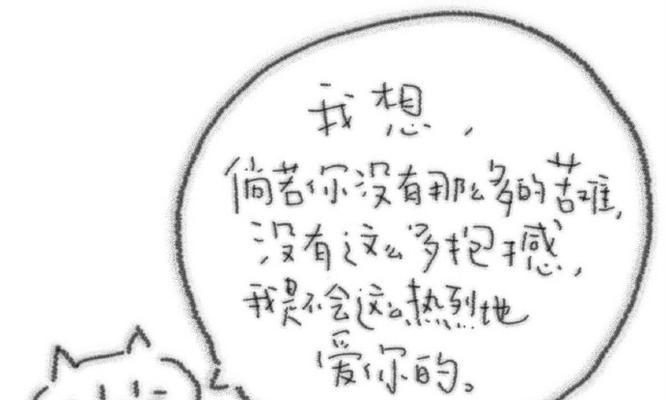 我想，
倘若你没有那么多的苦难，
没有这么多抱憾，
我是不会这么热烈地
爱你的。